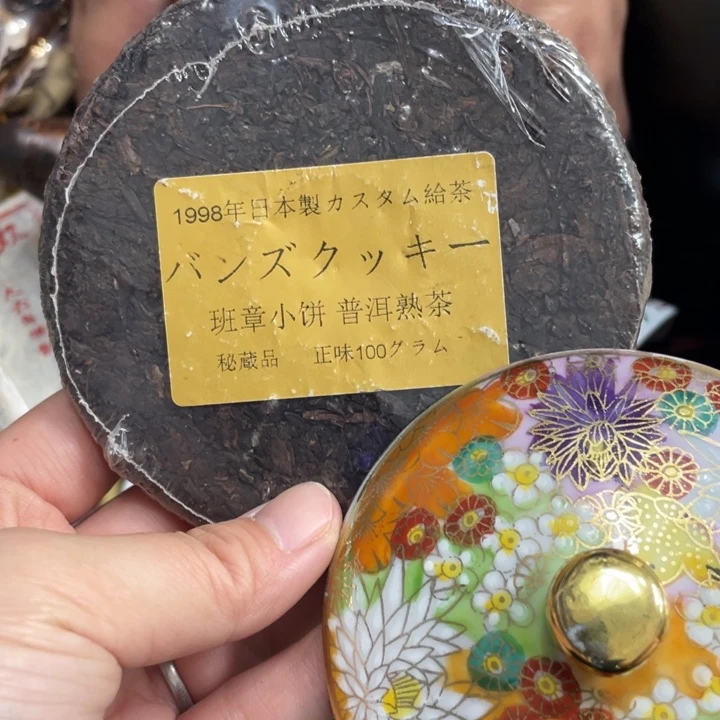 1998年日本製カスタム給茶
バンズクッキー
班章小饼 普洱熟茶
秘蔵品 正味100グラム